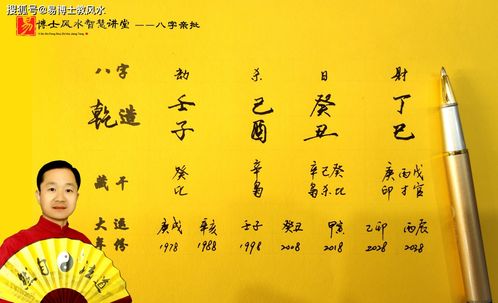 搜狐号@易博士教风水
易 博士风水智慧讲堂 ——八字亲批
八字 劫 杀 日 财
乾造 壬子 己酉 癸丑 丁巳
藏干 癸比 辛枭 辛己癸枭杀比 庚丙戊印才官
大运 庚戌 辛亥 壬子 癸丑 甲寅 乙卯 丙辰
年份 1978 1988 1998 2008 2018 2028 2038
道